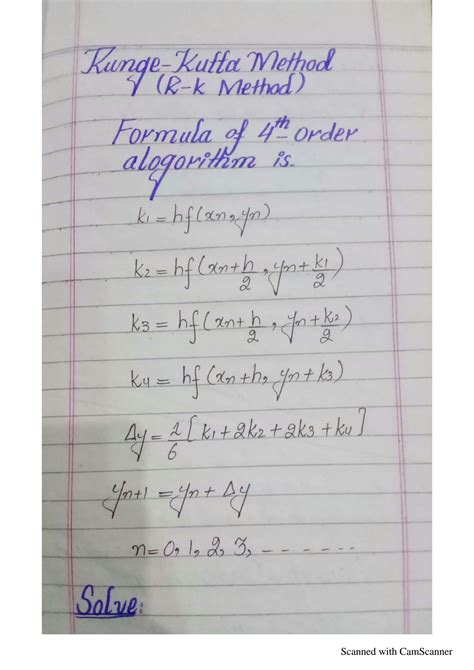 Runge-Kutta Method
(R-k Method)
Formula of 4th order
alogorithm is.
k1 = hf(xn, yn)
k2 = hf(xn+h/2, yn+k1/2)
k3 = hf(xn+h/2, yn+k2/2)
k4 = hf(xn+h, yn+k3)
Δy = 1/6[k1+2k2+2k3+k4]
yn+1 = yn + Δy
n=0, 1, 2, 3, - - - - - -
Solve:
Scanned with CamScanner